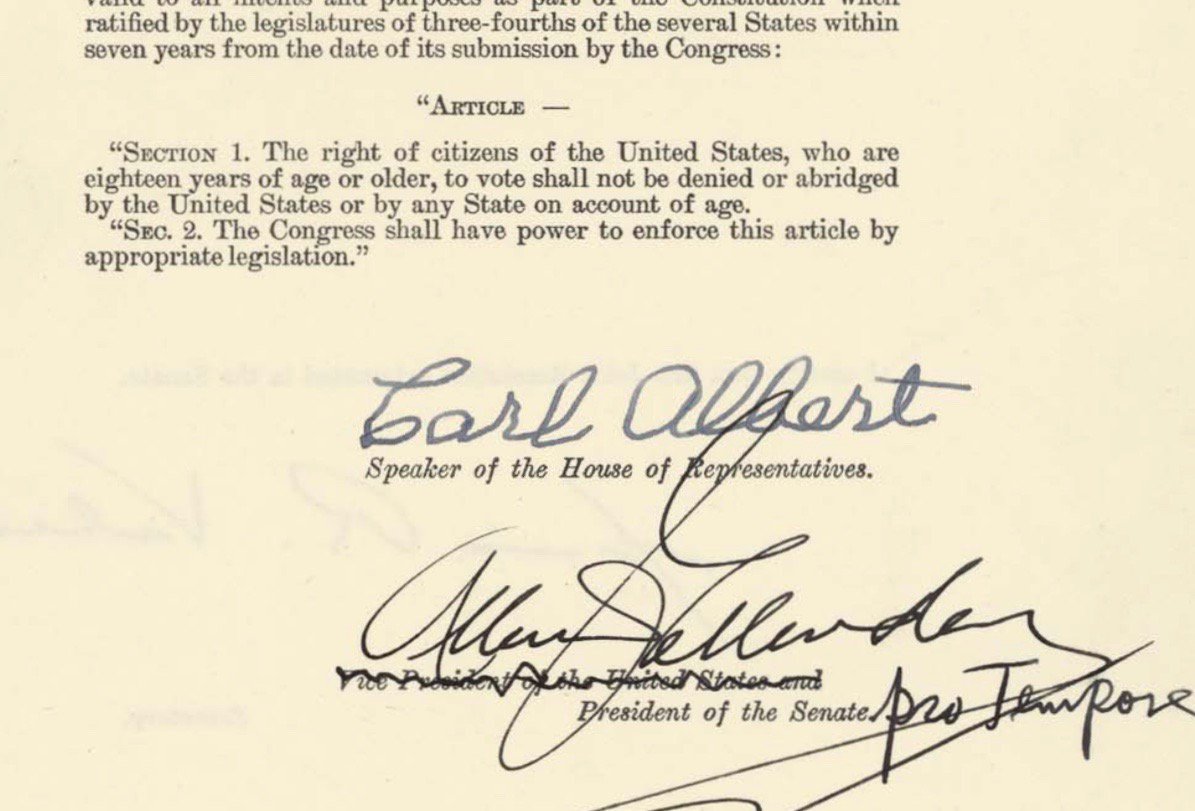 valid to all intents and purposes as part of the Constitution when
ratified by the legislatures of three-fourths of the several States within
seven years from the date of its submission by the Congress:
“ARTICLE —
“SECTION 1. The right of citizens of the United States, who are
eighteen years of age or older, to vote shall not be denied or abridged
by the United States or by any State on account of age.
“SEC. 2. The Congress shall have power to enforce this article by
appropriate legislation.”
Carl Albert
Speaker of the House of Representatives.
Allen J Ellender
Vice President of the United States and
President of the Senate. pro Tempore